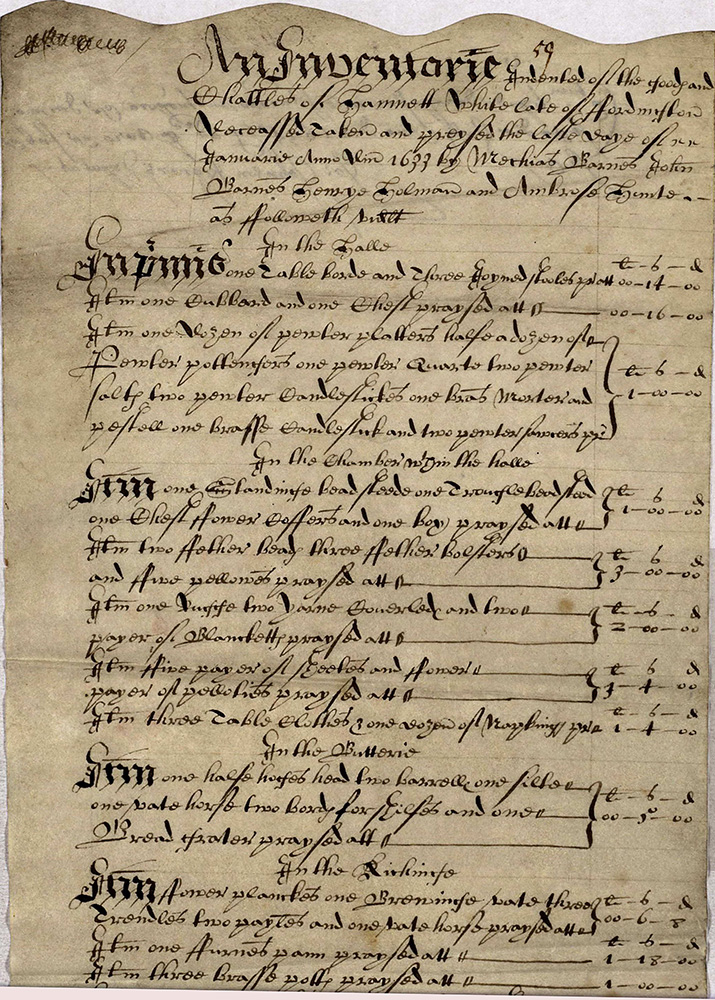 59
An Inventorie Indented of the goods and
Chattles of Hamnett White late of Ffordington
deceassed Taken and praysed the laste daye of
Januarie Anno Dm 1633 by Mechias Barnes John
Barnes Henrye Holman and Ambrose Hunte
as ffolloweth vizt
In the Halle
£ - s - d
Inprimis one Table borde and Three Joyned stooles pr att 00-14-00
Itm one Cubbard and one Chest praysed att 00-16-00
Itm one dozen of pewter platters halfe a dozen of
Pewter pottengers one pewter Quarte two pewter £ - s - d
salts two pewter Candlestickes one bras Morter and 1-00-00
pestell one brasse Candlestick and two pewter sawcers pr
In the Chamber wthin the halle
Itm one Standinge beadsteede one Trouckle beadstead £ s d
one Chest ffower Coffers and one box praysed att 1-00-00
Itm two ffether beads three ffether bolsters £ s d
and ffive pellowes praysed att 3-00-00
Itm one two Yarne Coverleds and two £ - s - d
payer of Blancketts praysed att 2-00-00
Itm ffive payer of sheetes and ffower £ s d
payer of pelloties praysed att -4-00
£ - s - d
Itm three Table Clothes & one dozen of Napkings pr 1-4-00
In the Butterie
Itm one halfe hogshead two barrells one silte £ - s - d
one vate horse two bords for shilfes and one 00- -00
Bread Crater praysed att
In the Kichinge
Itm ffower planckes one Brewinge vate three £ - s - d
Trendles two payles and one vate horse praysed att 00-6-8
£ - s - d
Itm one ffurnes pann praysed att 1-18-00
Itm three brasse potts praysed att 1-00-00